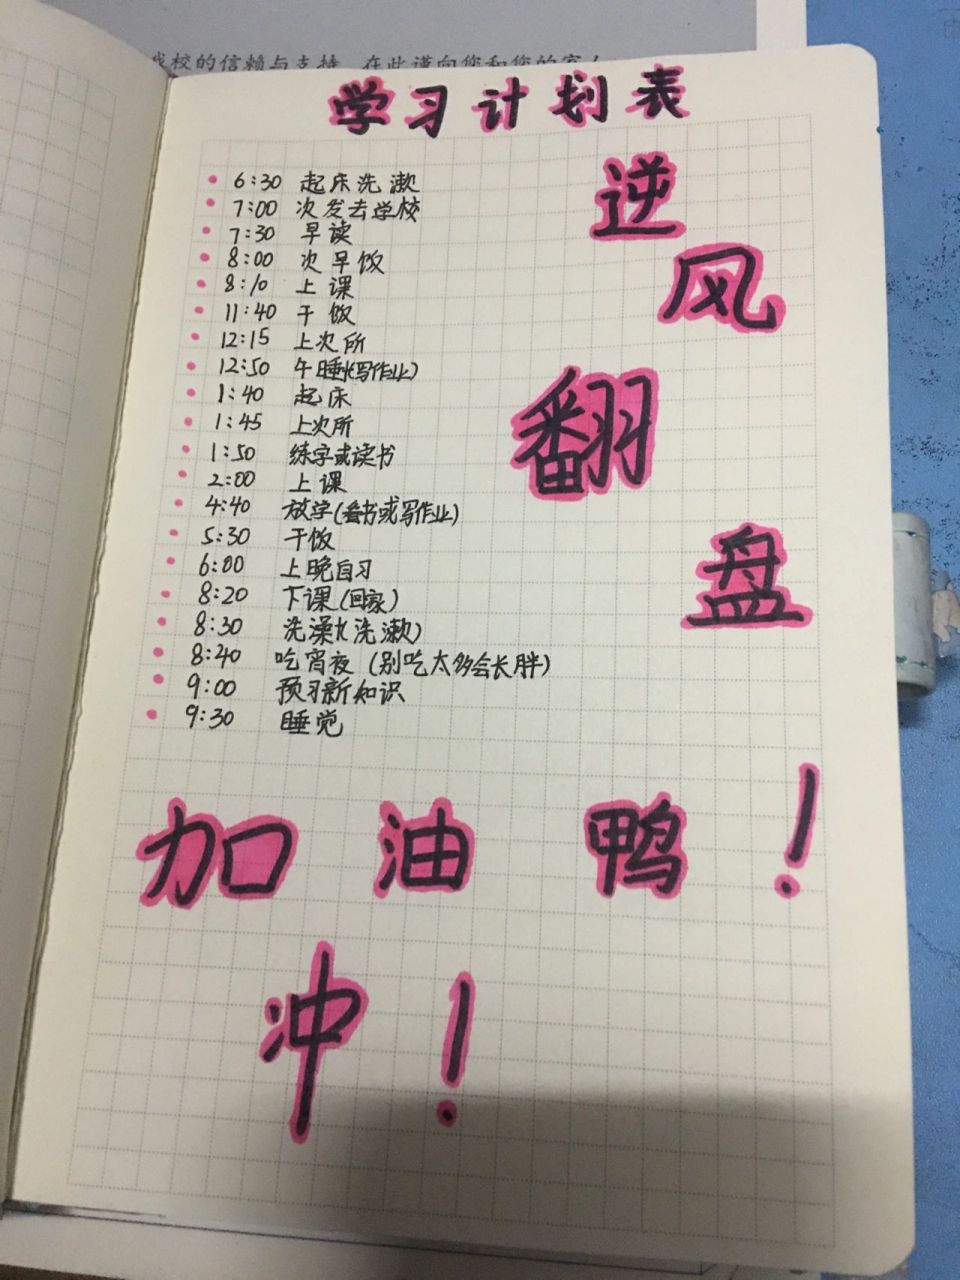 我校的信赖与支持，在此谨向您和您的家人
学习计划表
6:30 起床洗漱
7:00 次发去学校
7:30 早读
8:00 次早饭
8:10 上课
11:40 干饭
12:15 上次所
12:50 午睡(写作业)
1:40 起床
1:45 上次所
1:50 练字或读书
2:00 上课
4:40 放学(看书或写作业)
5:30 干饭
6:00 上晚自习
8:20 下课(回家)
8:30 洗澡(洗漱)
8:40 吃宵夜(别吃太多会长胖)
9:00 预习新知识
9:30 睡觉
逆
风
翻
盘
加油鸭!
冲!